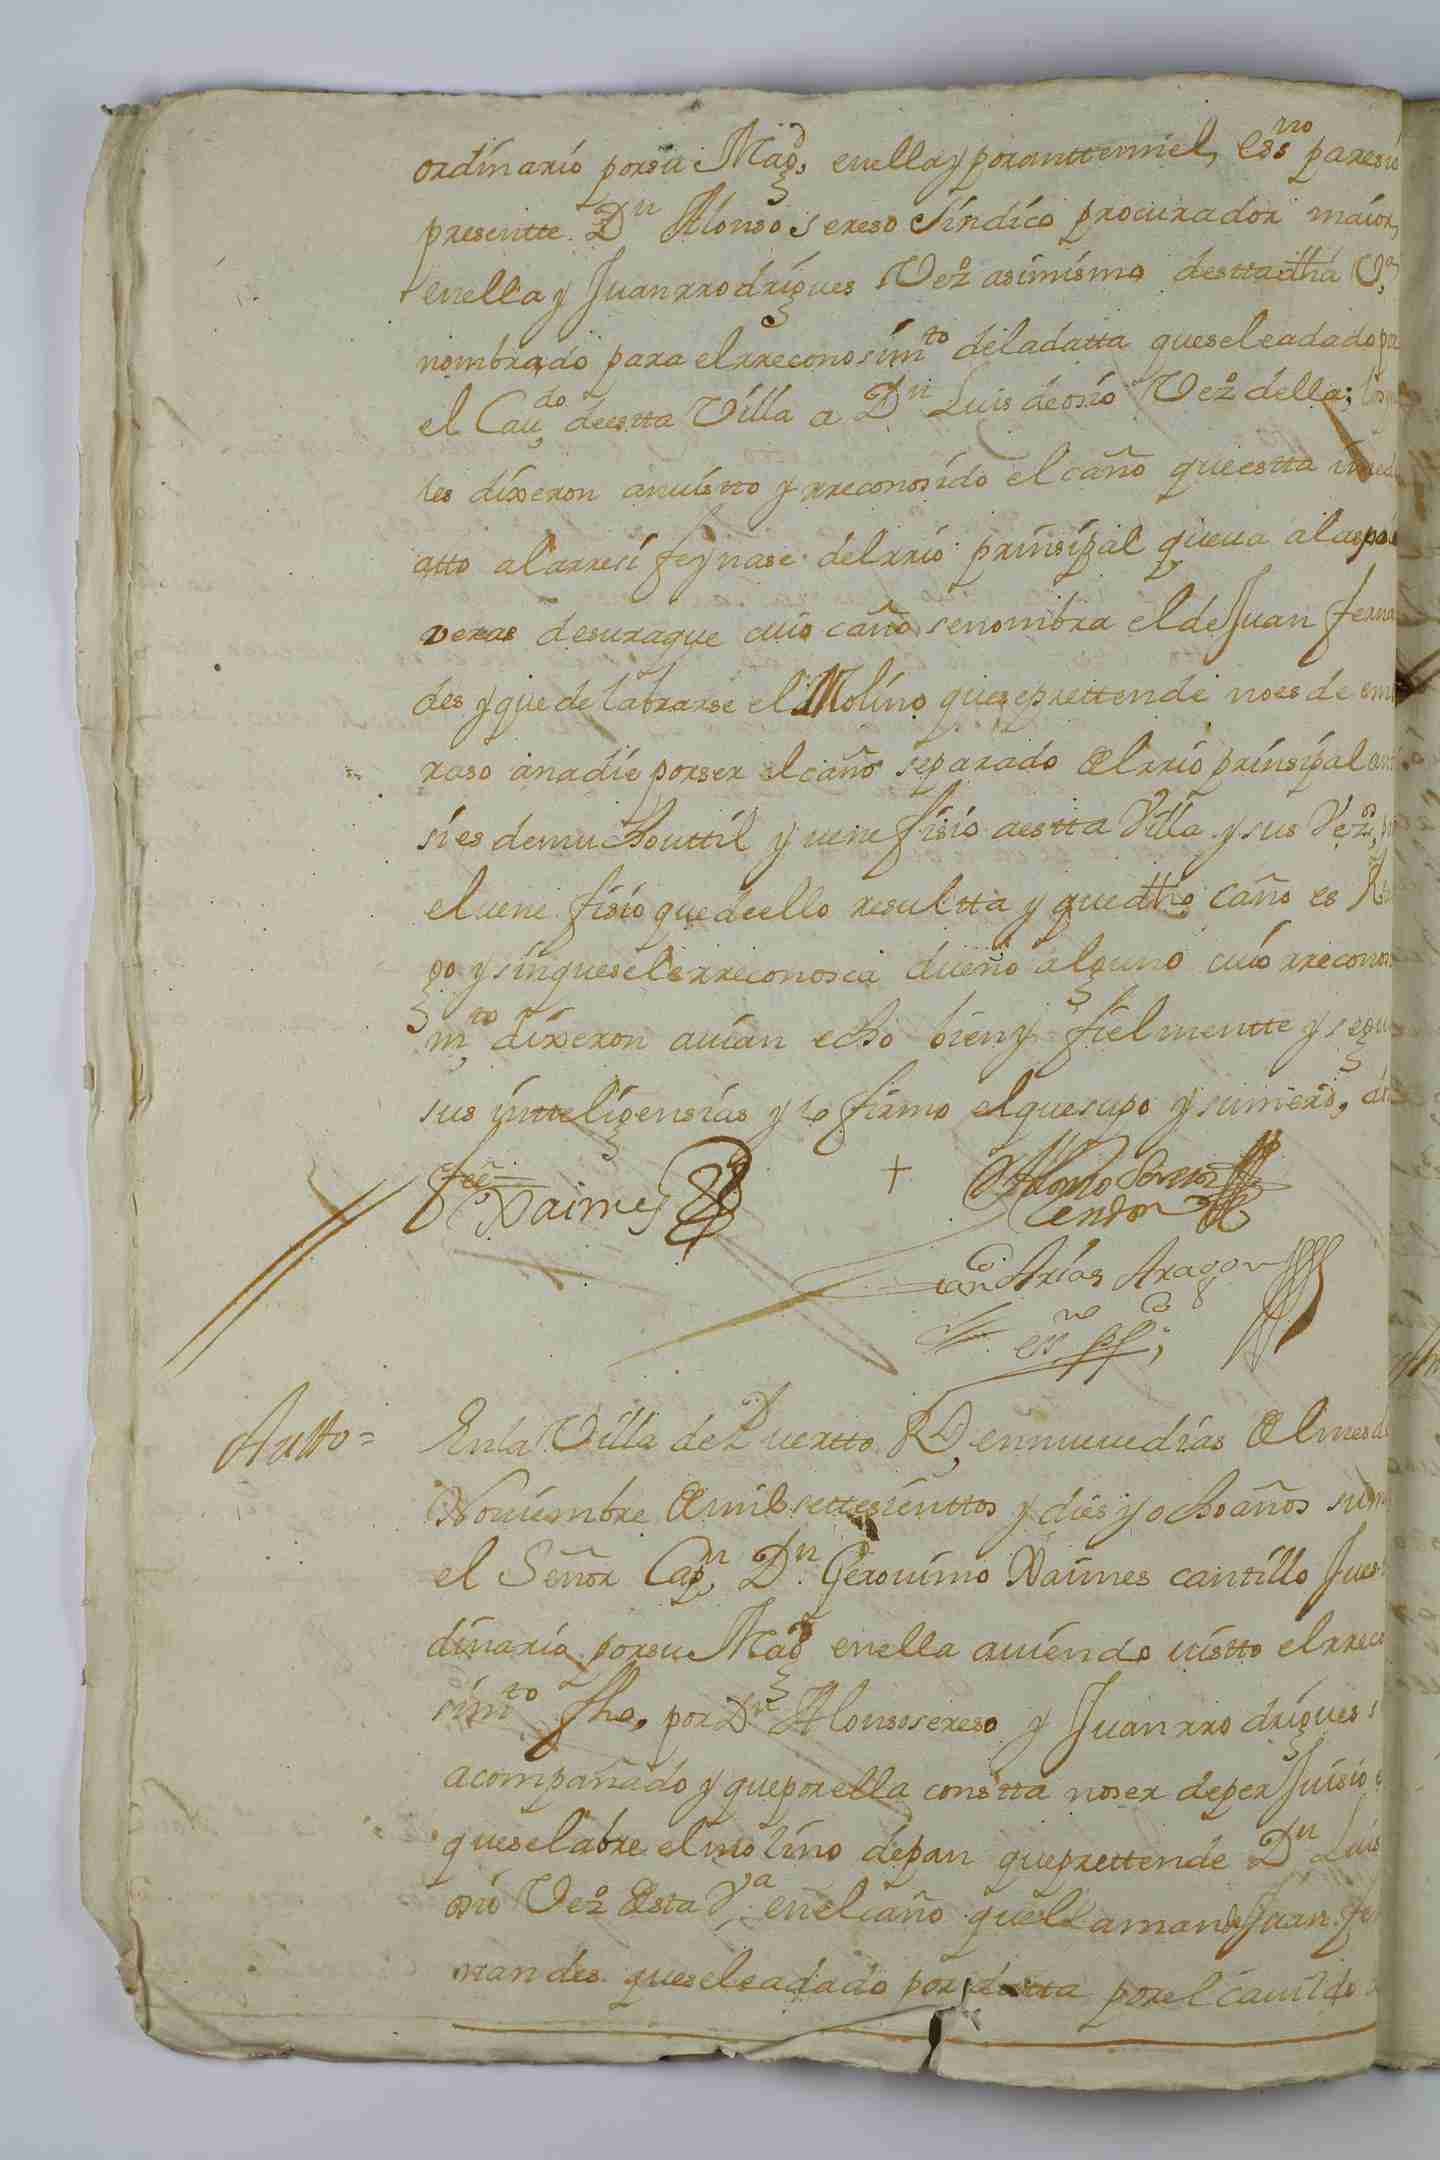 ordinario porsu Magd, enella y poranttemiel, essno paresio
presentte Dn Alonso sereso síndíco procurador maior,
enella y Juan rrodrigues Vezo asimismo desttadha Va
nombrado para elrreconosimto deladatta queseleadado
el Caudo deestta Villa a Dn Luis deosio Vezo della;
les dixeron anuistto y rreconosido el caño queestta
atto alarresífeynase delrrio prinsipal queua alas
veras desuraque cuio caño senombra eldeJuan ferna
des y que de labrarse el Molino queseprettende noes de em
raso anadie porser elcaño separado delrrio prinsipal
sies demuchouttil y uenefisio aestta Villa y sus Vezos,
eluenefisio quedeello resultta y quedho caño es
go y sinqueselerreconosca dueño alguno cuio rreconos
mto dixeron auian echo bieny fielmentte y segu
sus intteligensias y lo firmo elquesupo y sumerd,
Xaimes + Alonso Sereso
Cendon
Juan Arias Aragon
essno ppco
Autto= Enla Villa dePuertto Rl, ennueuedias delmesde
Nouiembre demilsettesienttos y dies y ochoaños
el Señor Capn Dn Geronimo Xaimes cantillo Jues
dinario porsu Magd enella auiendo uistto elrreco
simto fho, por Dn Alonsosereso y Juanrrodrigues
acompañado y queporella constta noser deperJuisio
queselabre elmolino depan queprettende Dn Luis
osio Vezo desta Va enelcaño quellaman deJuan fer
nandes queseleadado por datta porelcauildo